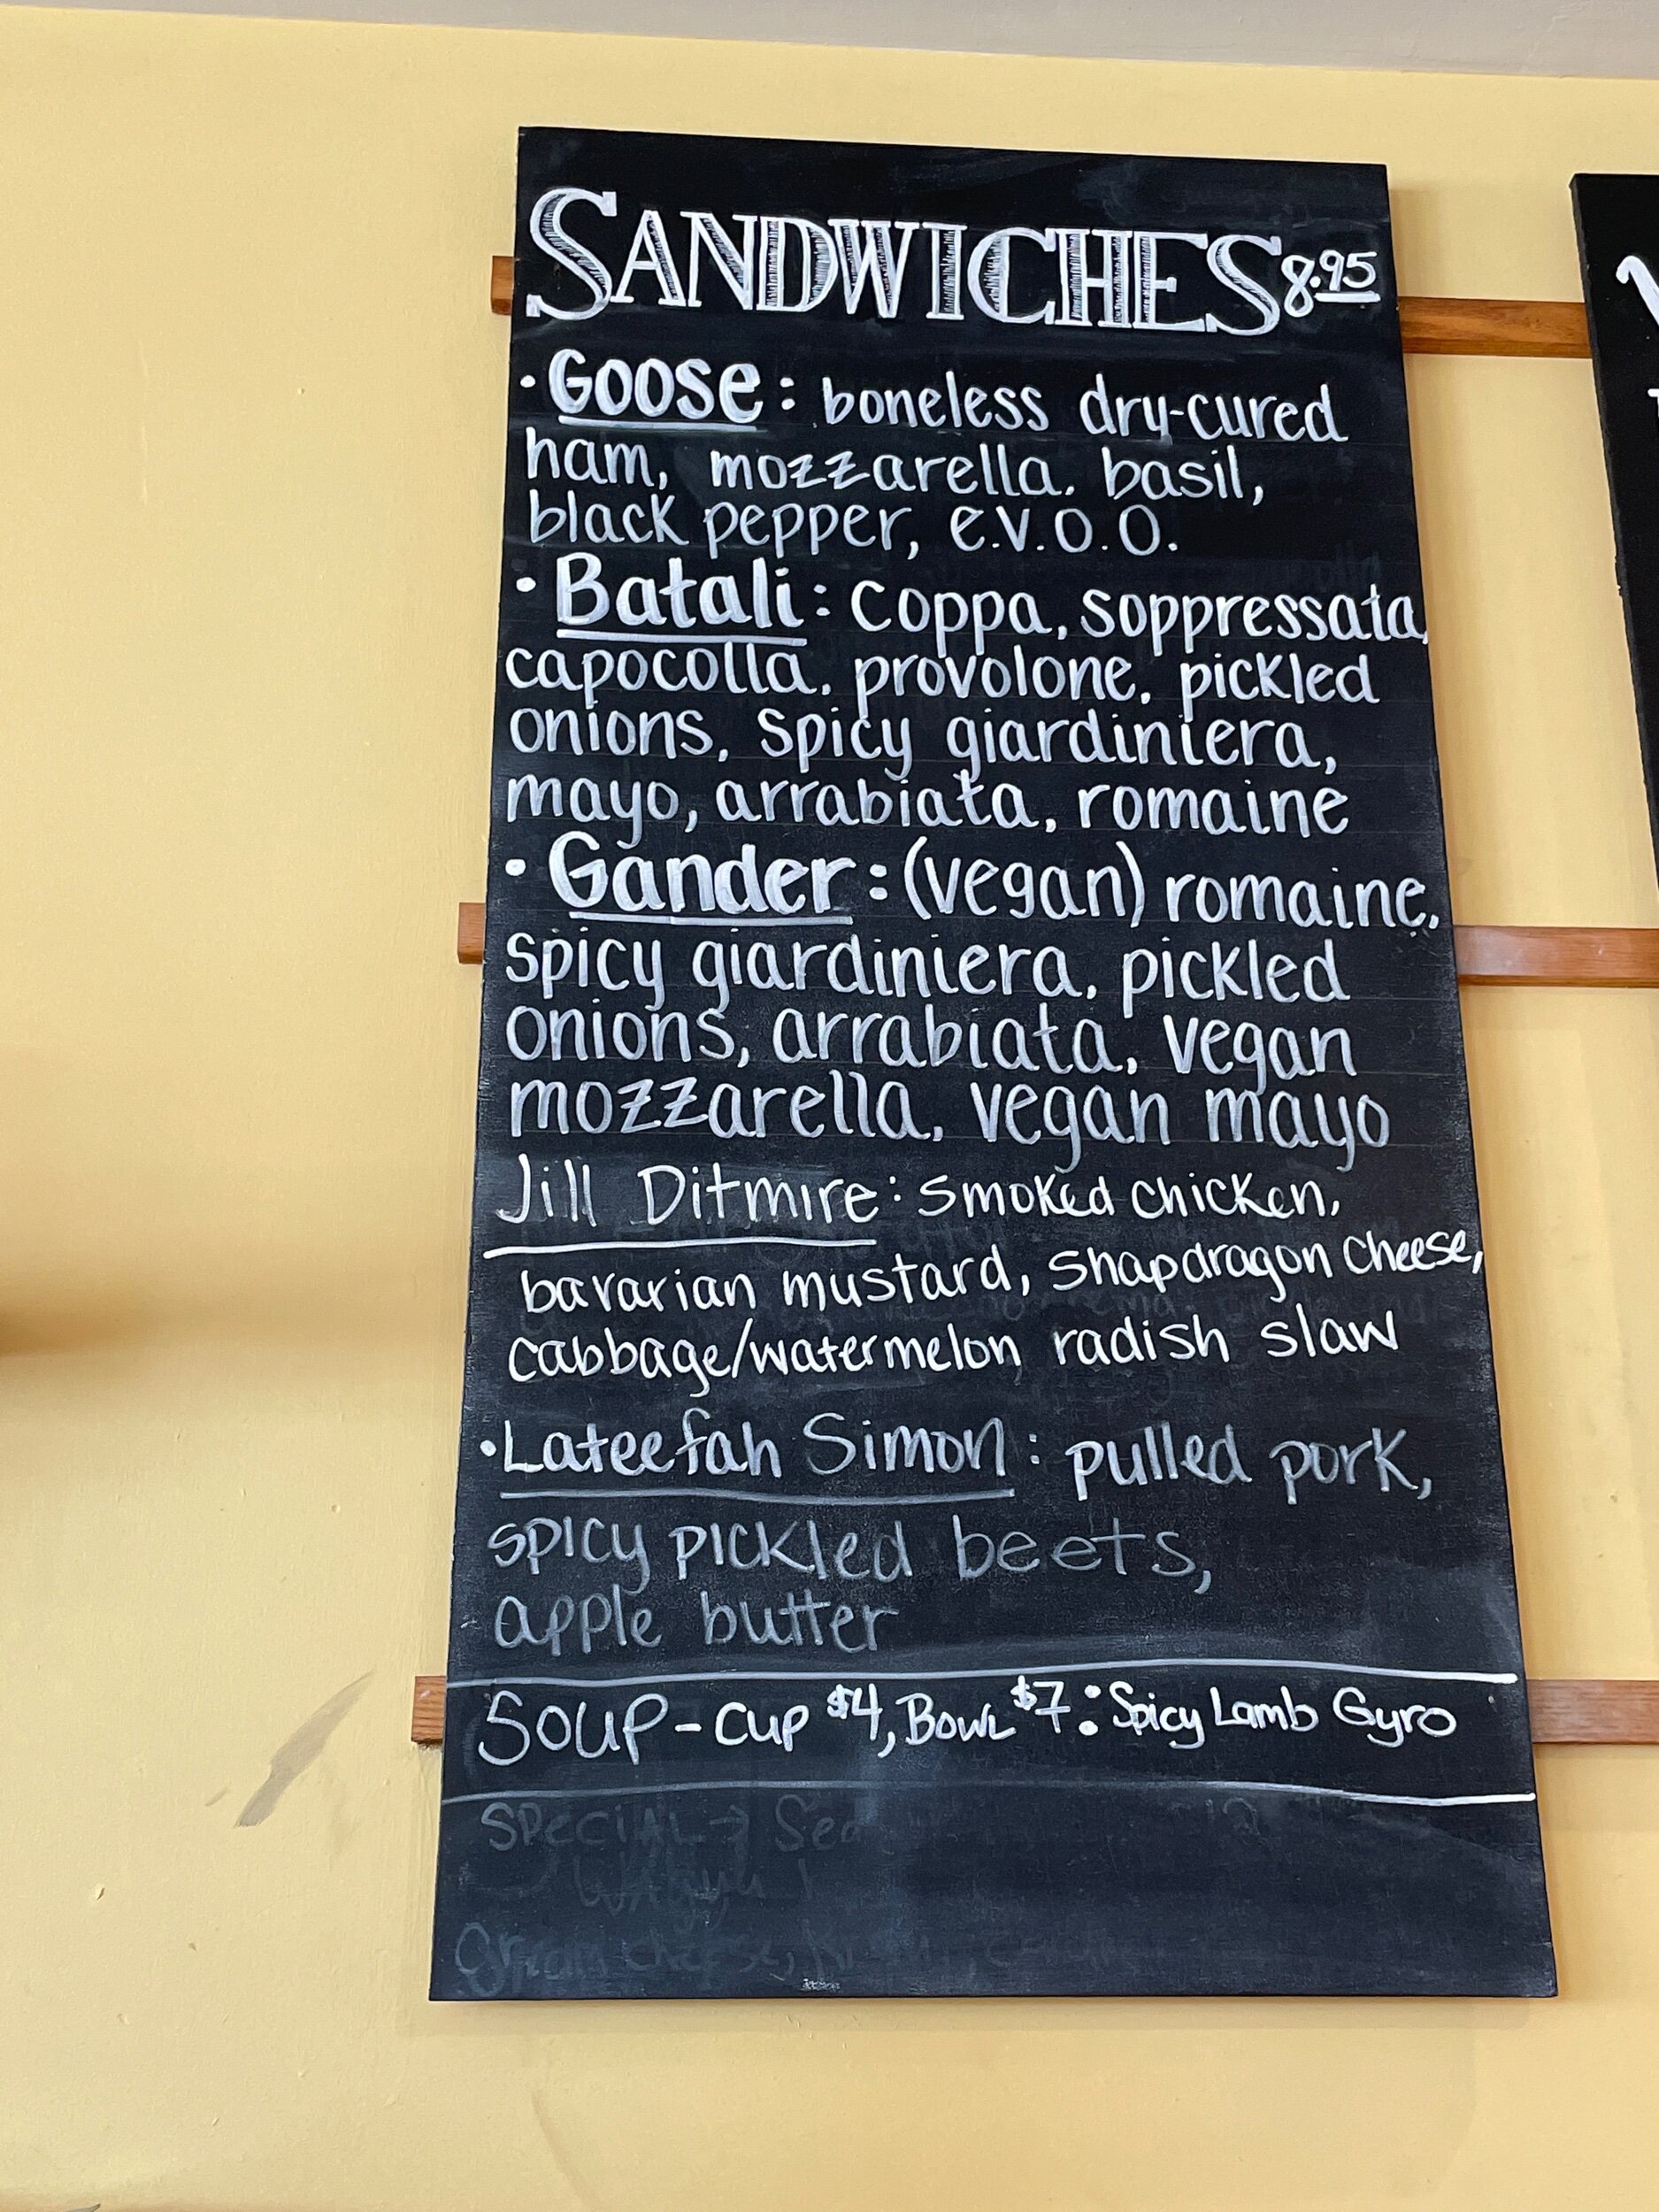 SANDWICHES 8.95
• Goose: boneless dry-cured
ham, mozzarella. basil,
black pepper, e.v.o.o.
• Batali: coppa, soppressata,
capocolla, provolone, pickled
onions, spicy giardiniera,
mayo, arrabiata, romaine
• Gander: (vegan) romaine,
spicy giardiniera, pickled
onions, arrabiata, vegan
mozzarella, vegan mayo
Jill Ditmire: smoked chicken,
bavarian mustard, snapdragon cheese,
cabbage/watermelon radish slaw
• Lateefah Simon: pulled pork,
spicy pickled beets,
apple butter
SOUP - Cup $4, Bowl $7: Spicy Lamb Gyro
SPECIAL →
cheese,